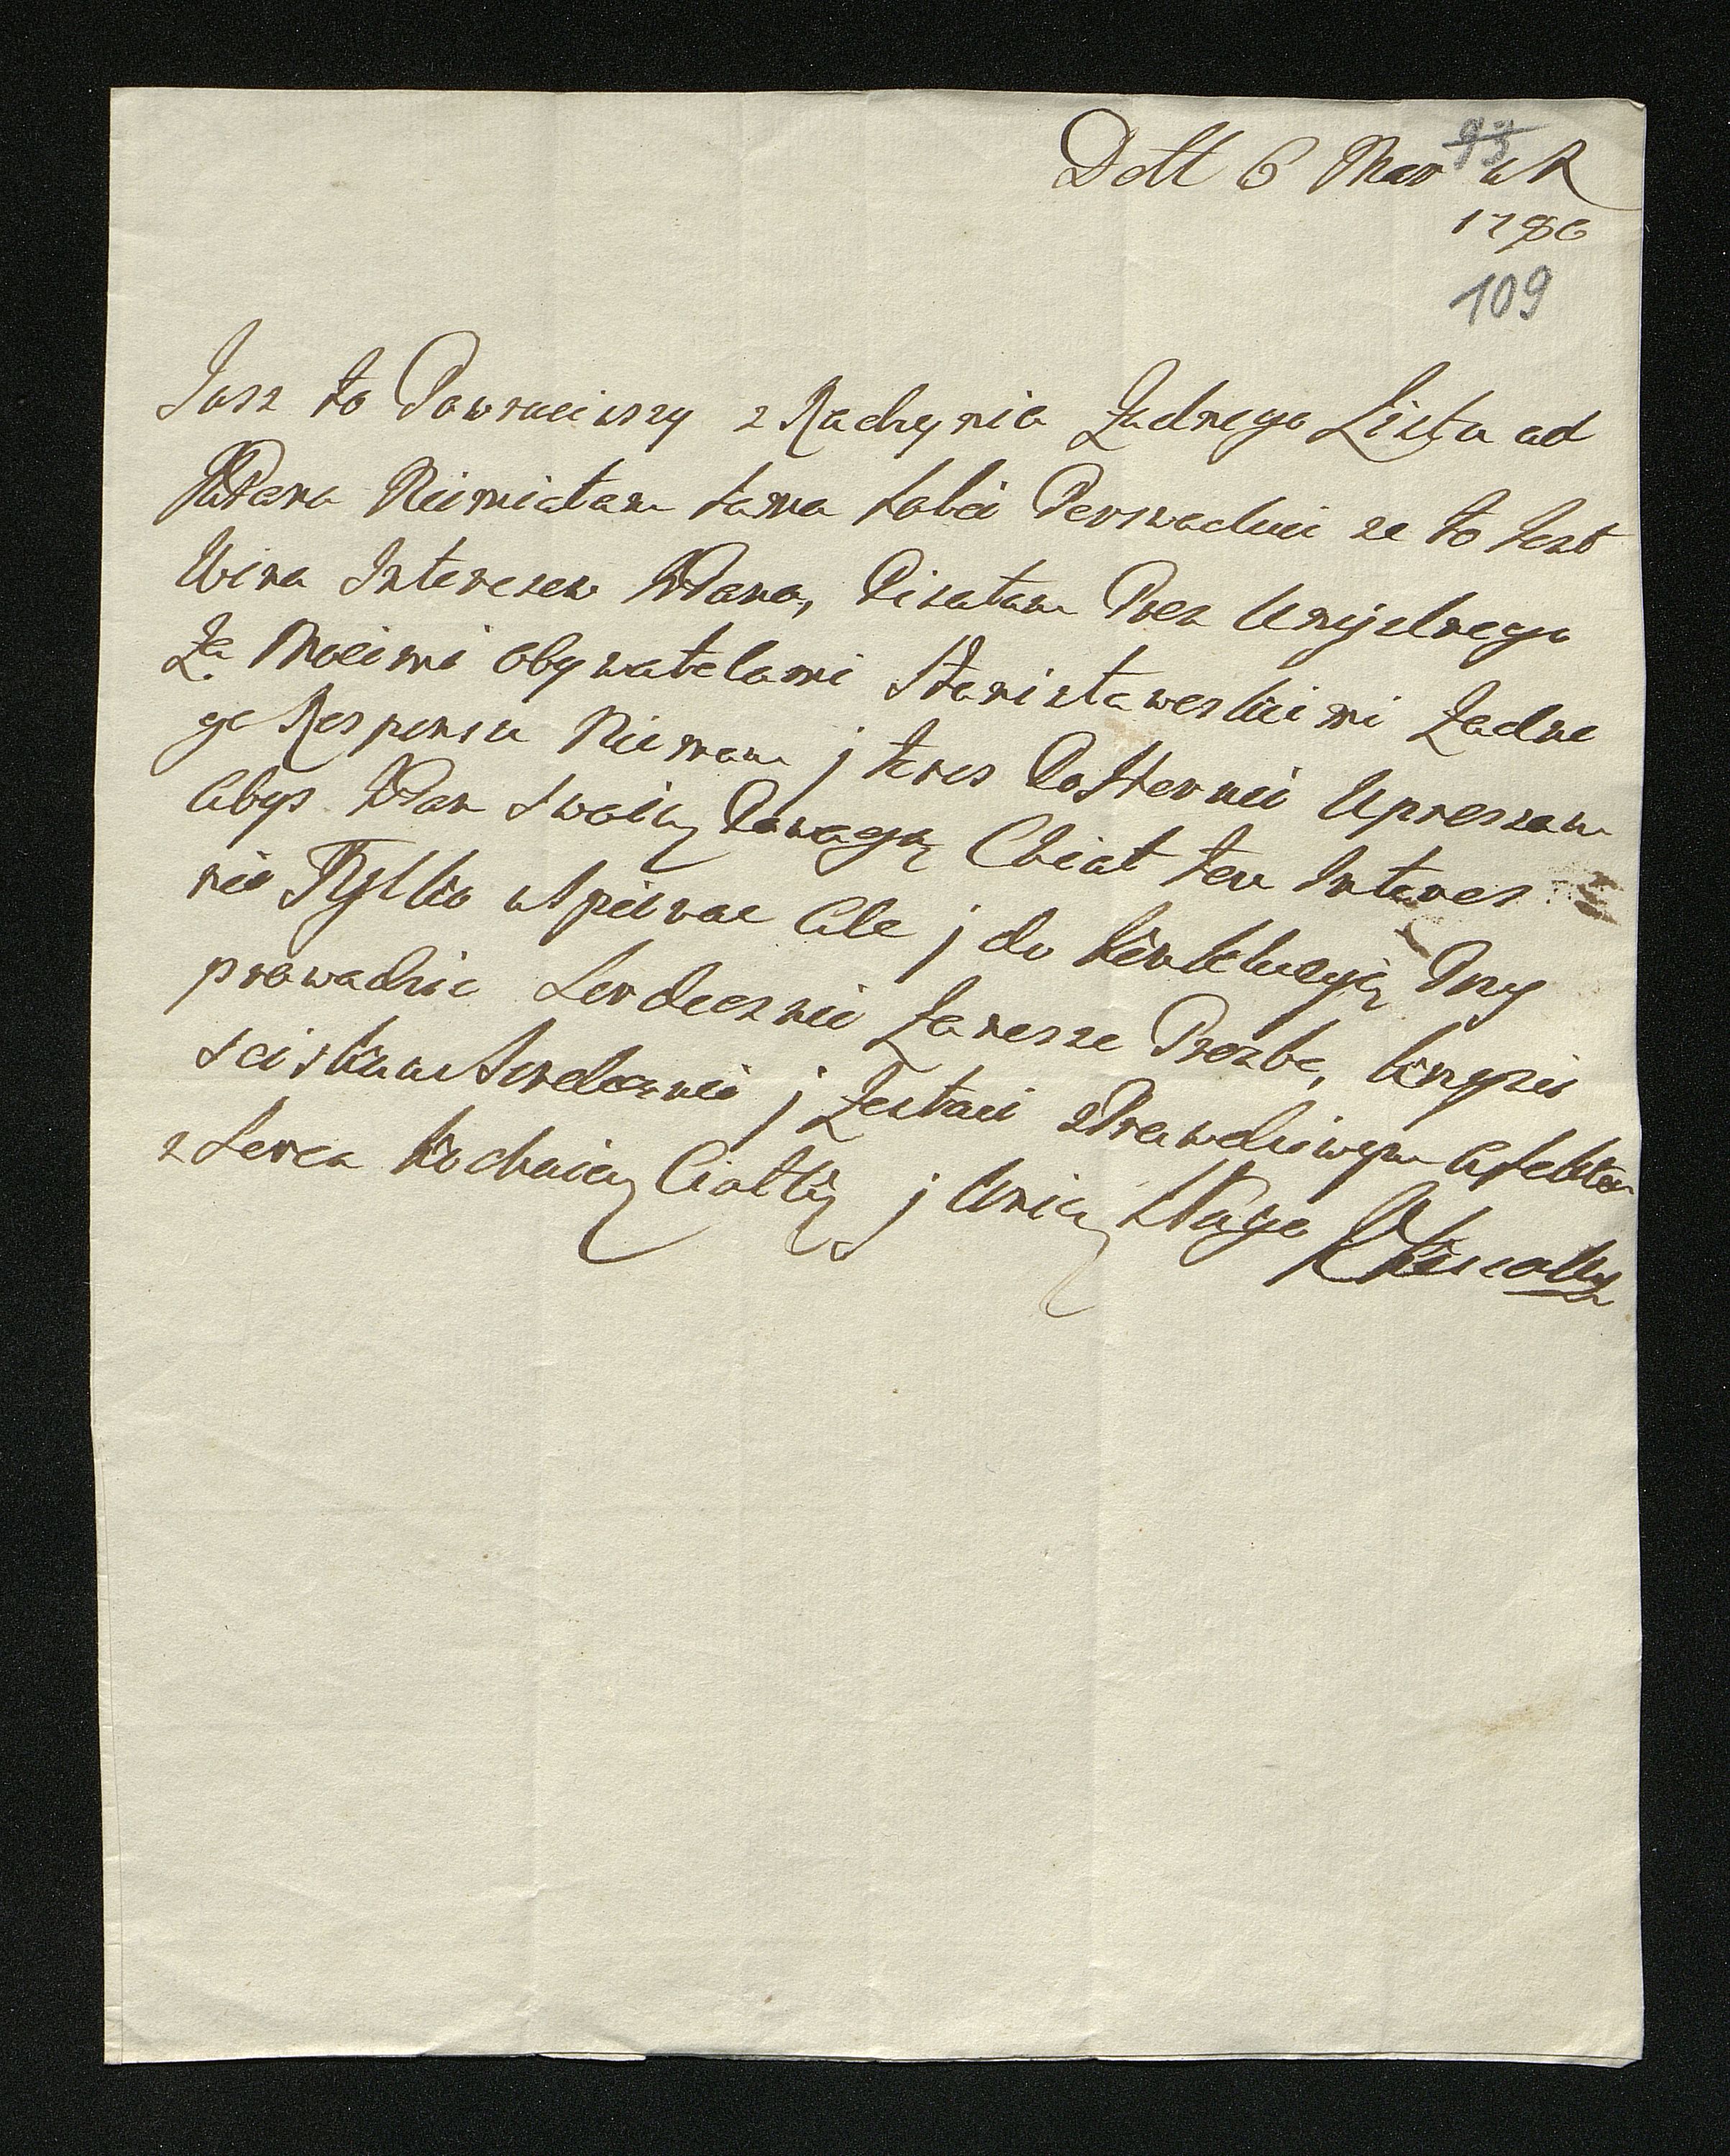 Dett 6 Mar 93 a R
1786
109
Jusz to Powruciwszy z Rachynia Zadnego Listu od
WPana Niemiałam sama sobie Perswaduie ze to Jest
Wina Interesow WPana, Pisałam Prez Umyslnego
Za Moiemi Obywatelami Stanisławeskiemi Zadne
go Responsu Niemam j teres Powternie Upreszam
Abys WPan Swoią Powagą Chciał ten Interes
nie Tylko wspierac Ale j do konklucyi Przy
prowadzic Serdecznie Zanesze Prozbe, kinysie
sciskam Serdecznie j Zestaie zPrawdziwym Afektem
z Serca kochaiącą Ciotką j Unią Sługą